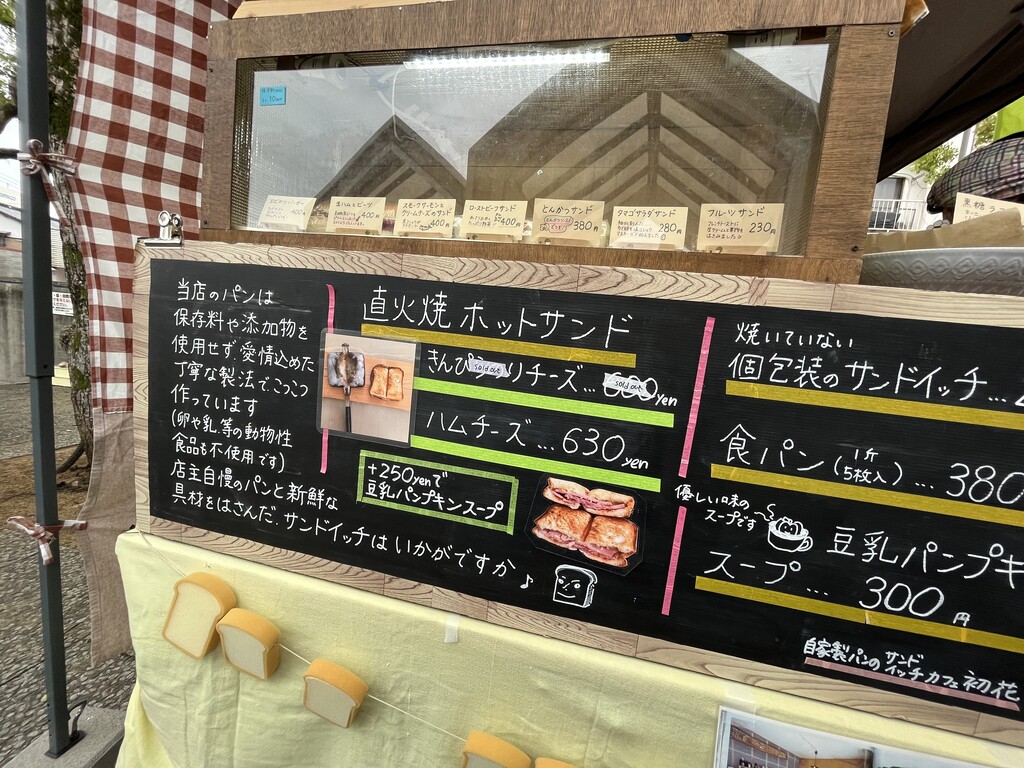 生ハムとビーツ
400円
スモークサーモンと
クリームチーズのサンド
400円
ローストビーフサンド
400円
とんかつサンド
380円
タマゴサラダサンド
280円
フルーツサンド
230円
黒糖
当店のパンは
保存料や添加物を
使用せず、愛情込めた
丁寧な製法でこつこつ
作っています
(卵や乳等の動物性
食品も不使用です)
店主自慢のパンと新鮮な
具材をはさんだ、サンドイッチはいかがですか♪
直火焼ホットサンド
きんぴ りチーズ...
sold out
sold out
yen
ハムチーズ...630yen
+250yenで
豆乳パンプキンスープ
焼いていない
個包装のサンドイッチ...
食パン(1斤5枚入)...380
優しい味の
スープです
豆乳パンプキ
スープ...300円
自家製パンのサンドイッチカフェ初花